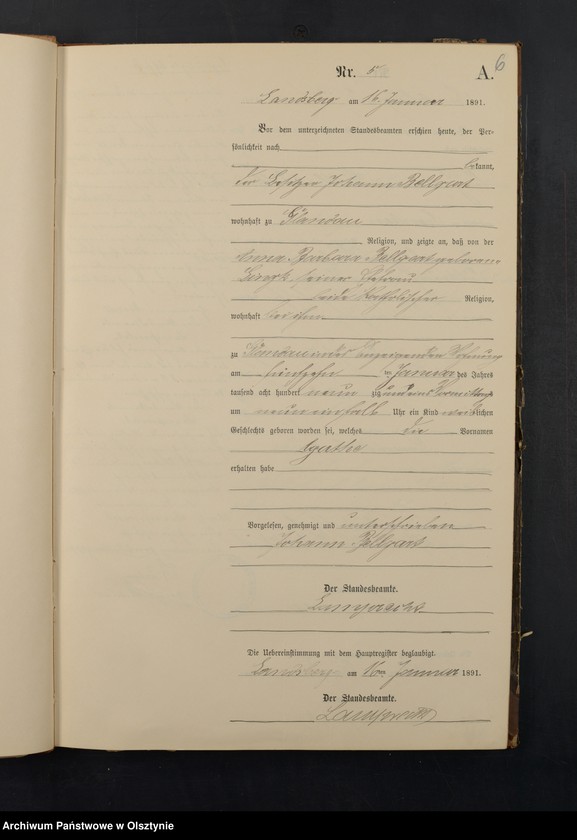 6
Nr. 5 A.
Landsberg am 16 Januar 1891.
Vor dem unterzeichneten Standesbeamten erschien heute, der Per-
sönlichkeit nach
bekannt,
der Besitzer Johann Bellgart
wohnhaft zu Glandau
Religion, und zeigte an, daß von der
Anna Barbara Bellgart geborene
seiner Ehefrau
beide katholischer Religion,
wohnhaft bei ihm
zu Glandau in der Wohnung
am Januar des Jahres
tausend acht hundert neun zig und eins Vormittags
um neun einhalb Uhr ein Kind weiblichen
Geschlechts geboren worden sei, welches die Vornamen
Agathe
erhalten habe
Vorgelesen, genehmigt und unterschrieben
Johann Bellgart
Der Standesbeamte.
Die Uebereinstimmung mit dem Hauptregister beglaubigt.
Landsberg am 16ten Januar 1891.
Der Standesbeamte.
Archiwum Państwowe w Olsztynie